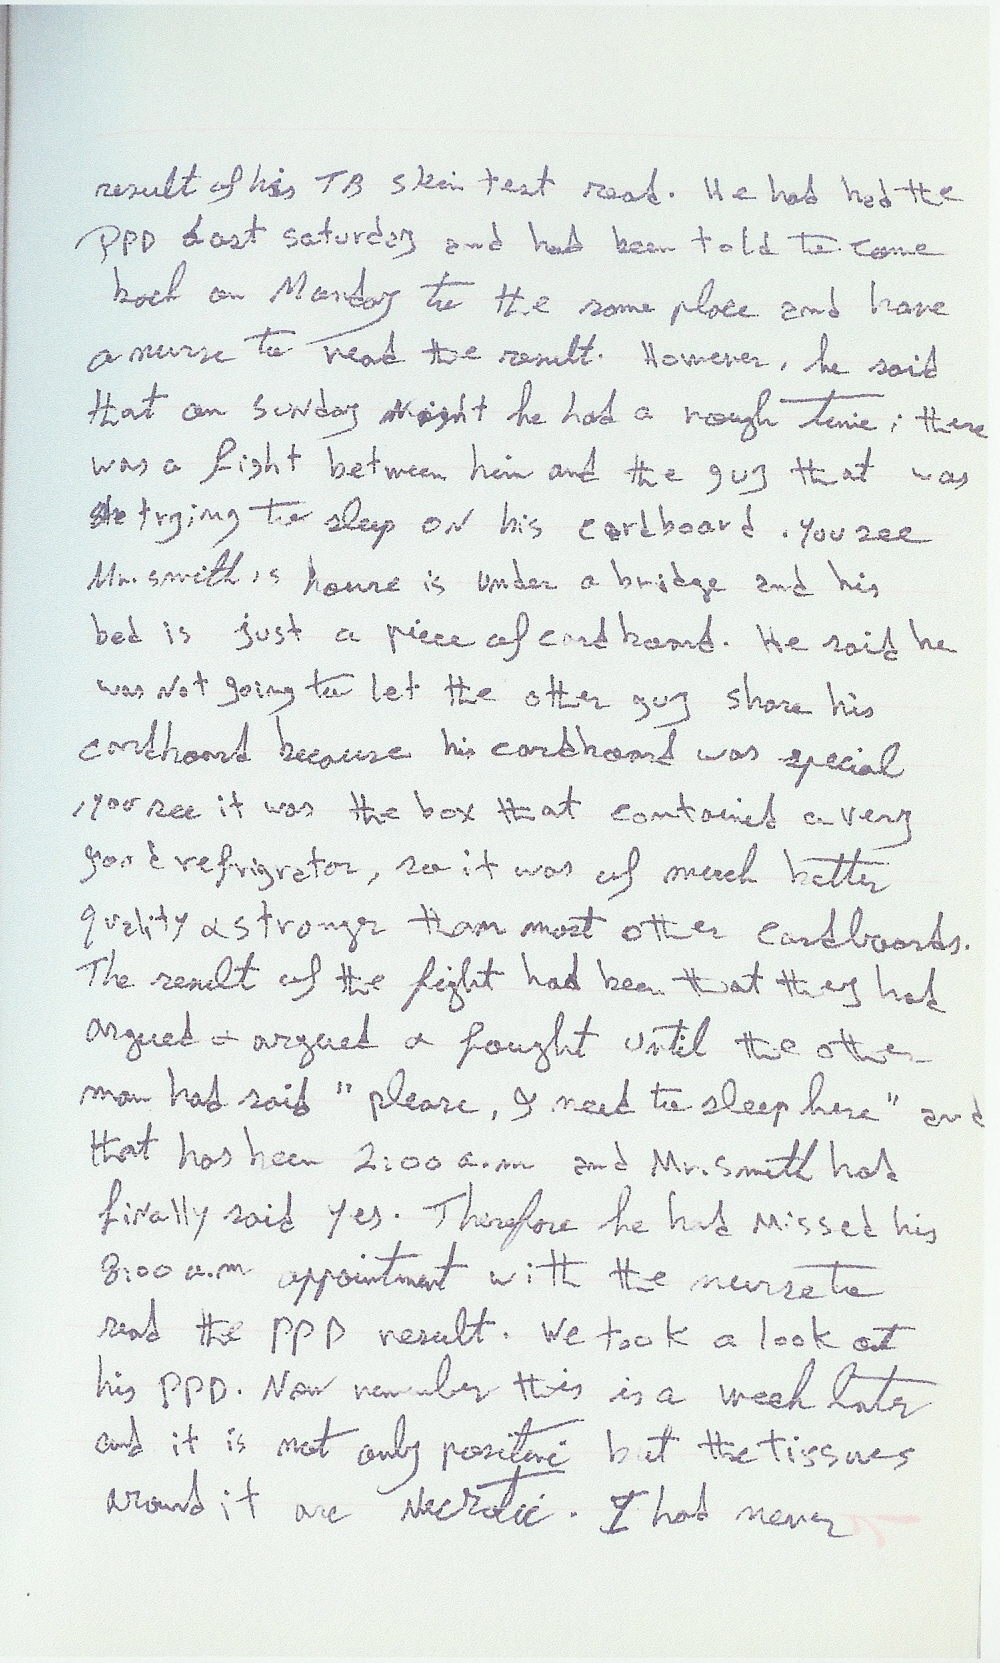 result of his TB skin test read. He had had the
PPD Last saturday and had been told to come
back on Monday to the same place and have
a nurse to read the result. However, he said
that on sunday night he had a rough time; there
was a fight between him and the guy that was
trying to sleep on his cardboard. You see
Mr. smith,s house is under a bridge and his
bed is just a piece of cardboard. He said he
was not going to let the other guy share his
cardboard because his cardboard was special
, you see it was the box that contained a very
good refrigrator, so it was of much better
quality & stronger than most other cardboards.
The result of the fight had been that they had
argued & argued & fought until the other
man had said "please, I need to sleep here" and
that has been 2:00 a.m and Mr. Smith had
finally said yes. Therefore he had missed his
8:00 a.m appointment with the nurse to
read the PPD result. We took a look at
his PPD. Now remember this is a week later
and it is not only positive but the tissues
around it are Necrotic. I had never